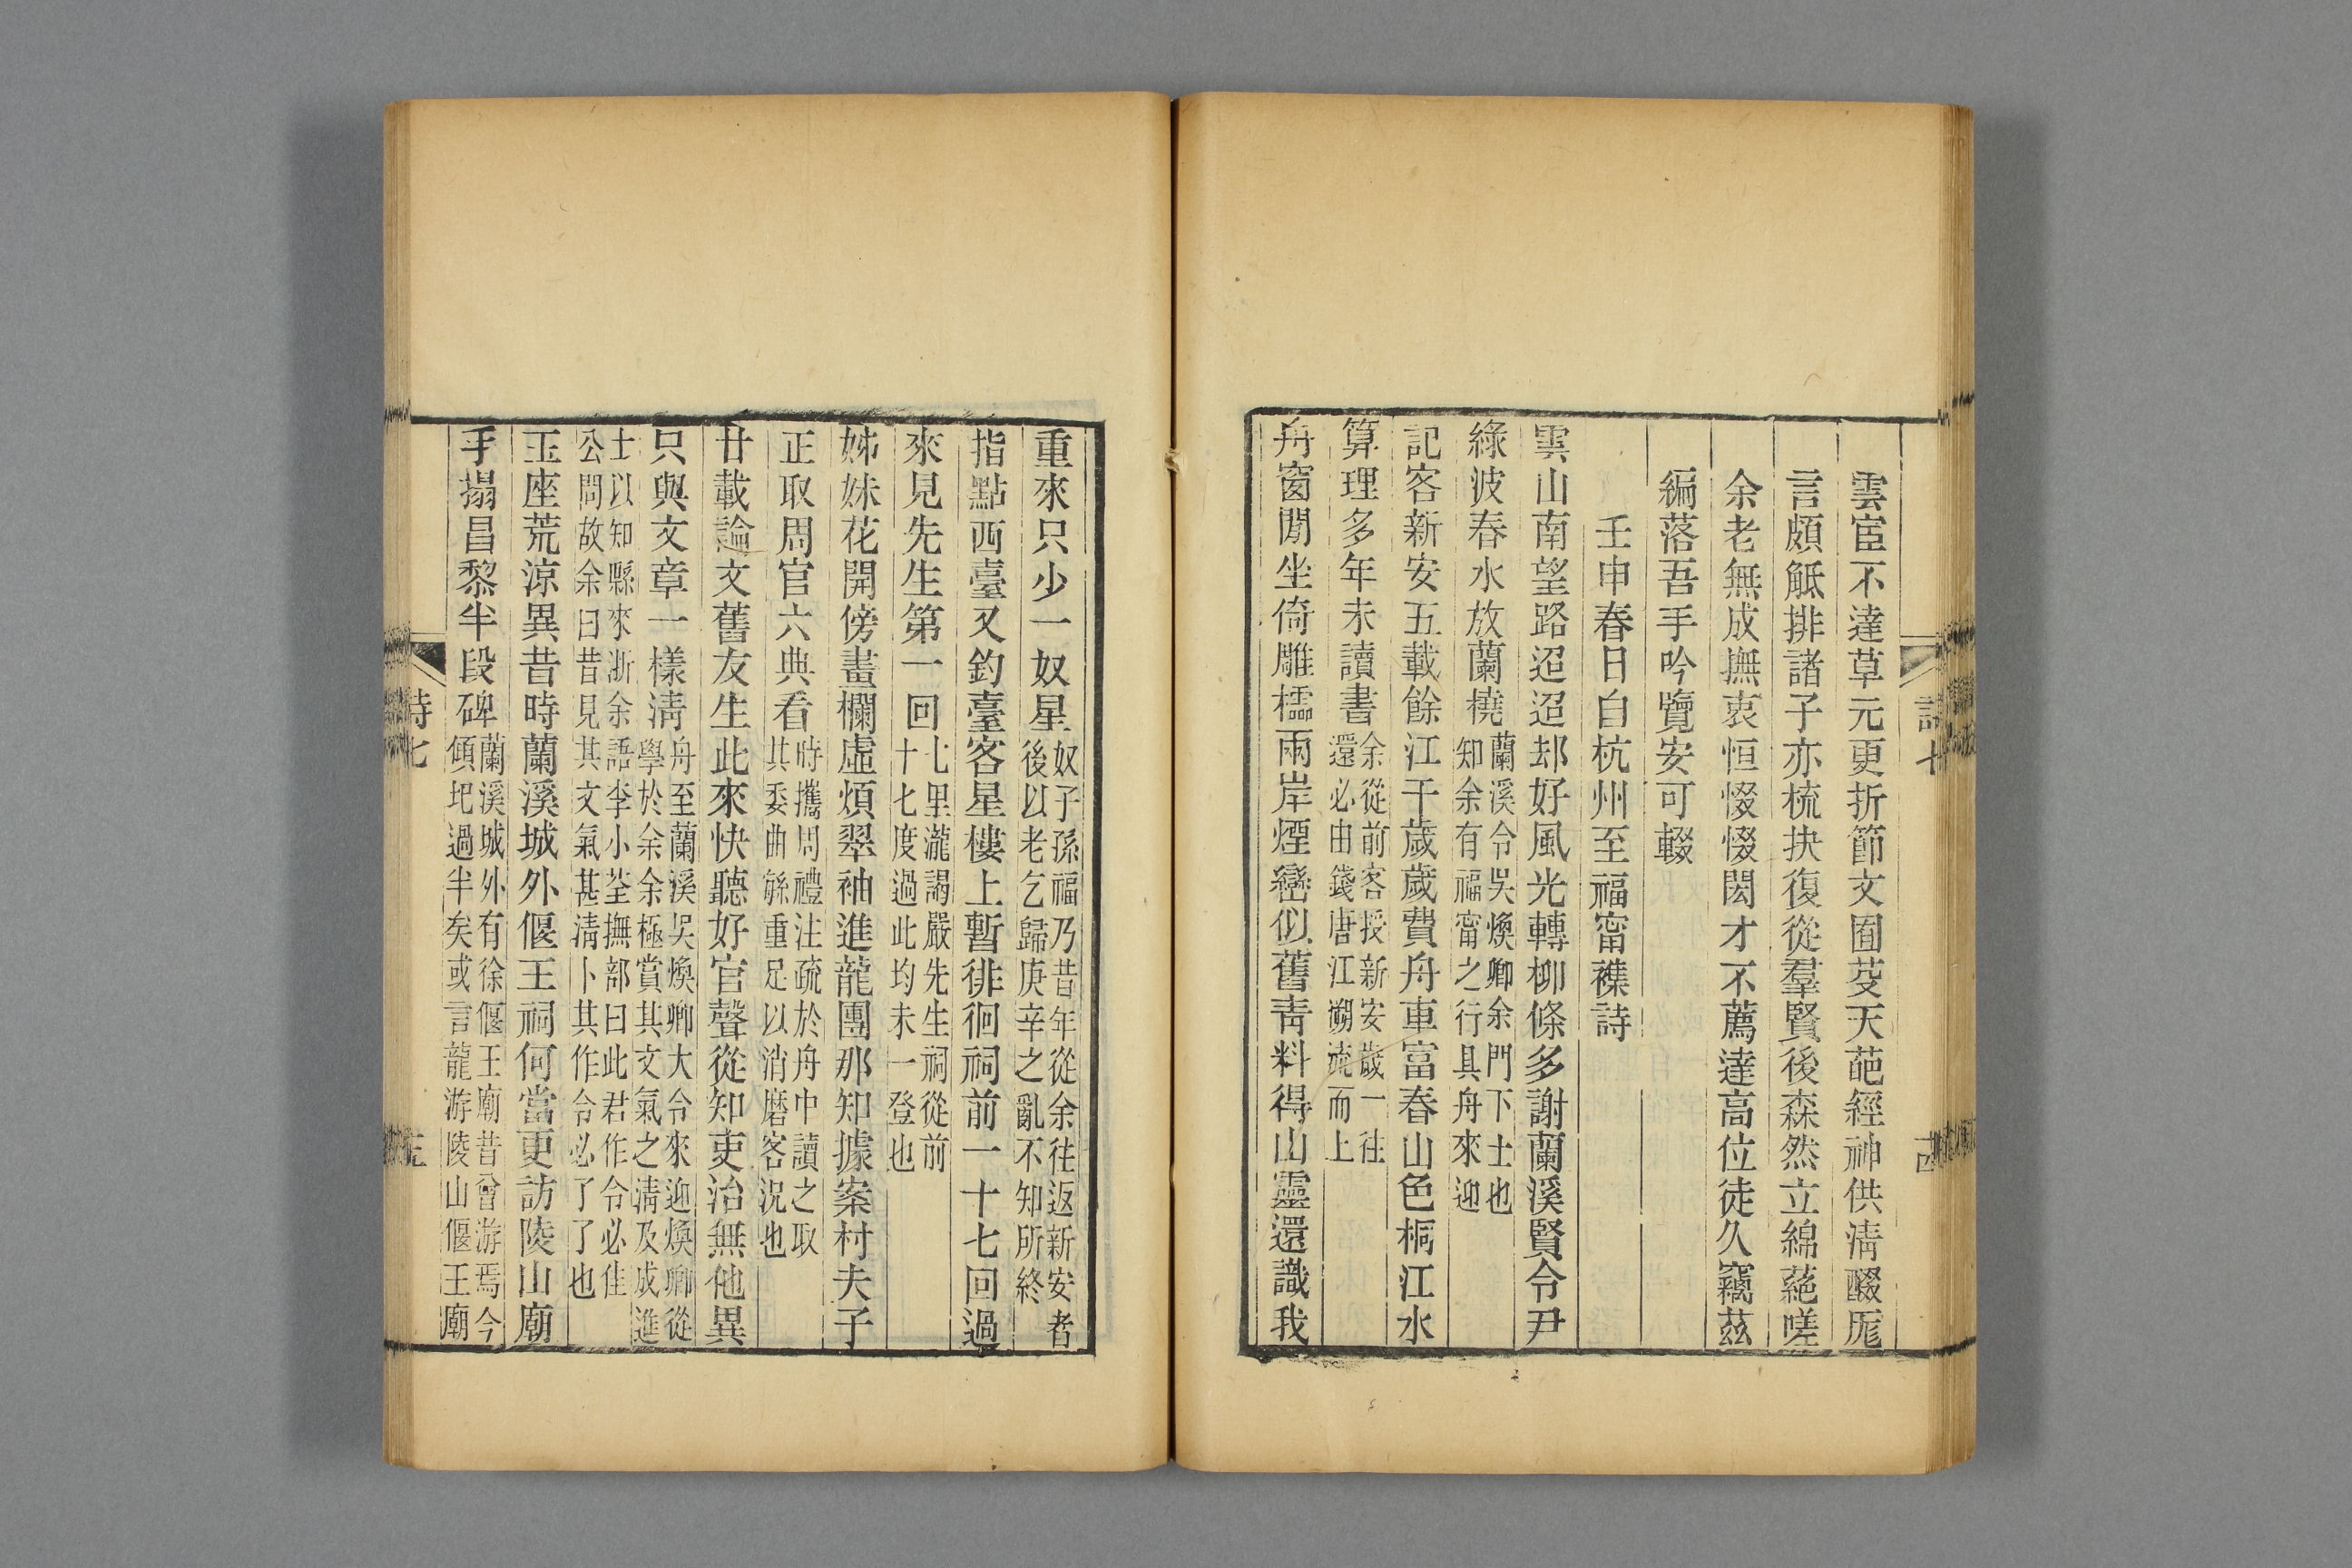 雲宦不達草元更折節文囿芟天葩經神供淸醊厖
言頗觝排諸子亦梳抉復從羣賢後森然立綿蕝嗟
余老無成撫衷恒惙惙閎才不薦達高位徒久竊茲
編落吾手吟覽安可輟
壬申春日自杭州至福甯襍詩
雲山南望路迢迢却好風光轉柳條多謝蘭溪賢令尹
綠波春水放蘭橈蘭溪令吳煥卿余門下士也
知余有福甯之行具舟來迎
記客新安五載餘江干歲歲費舟車富春山色桐江水
算理多年未讀書余從前客授新安歲一往
還必由錢唐江溯流而上
舟窗閒坐倚雕櫺兩岸煙巒似舊靑料得山靈還識我
詩七
重來只少一奴星奴子孫福乃昔年從余往返新安者
後以老乞歸庚辛之亂不知所終
指點西臺又釣臺客星樓上暫徘徊祠前一十七回過
來見先生第一回七里瀧謁嚴先生祠從前
十七度過此均未一登也
姊妹花開傍畫欄虛煩翠袖進龍團那知據案村夫子
正取周官六典看時攜周禮注疏於舟中讀之取
其委曲緐重足以消磨客況也
廿載論文舊友生此來快聽好官聲從知吏治無他異
只與文章一樣淸舟至蘭溪吳煥卿大令來迎煥卿從
學於余余極賞其文氣之淸及成進
士以知縣來浙余語李小荃撫部曰此君作令必佳
公問故余曰昔見其文氣甚淸卜其作令必了了也
玉座荒涼異昔時蘭溪城外偃王祠何當更訪陵山廟
手搨昌黎半段碑蘭溪城外有徐偃王廟昔曾游焉今
傾圯過半矣或言龍游陵山偃王廟
詩七